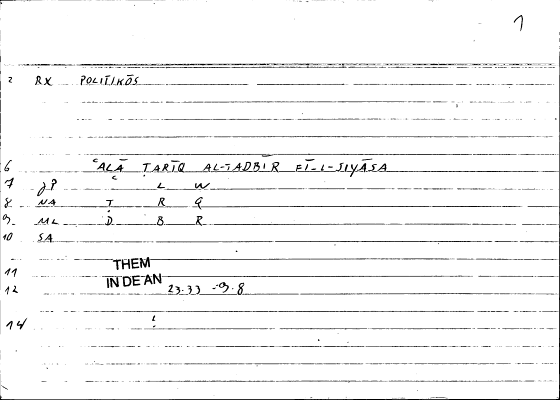 1
2 RX POLITIKŌS
6 ʿALĀ ṬARĪQ AL-TADBĪR FĪ-L-SIYĀSA
7 JP ʿ L W
8 NA Ṭ R Q
9 ML D B R
10 SA
11 THEM
12 IN DE AN 23.33 -9.8
14